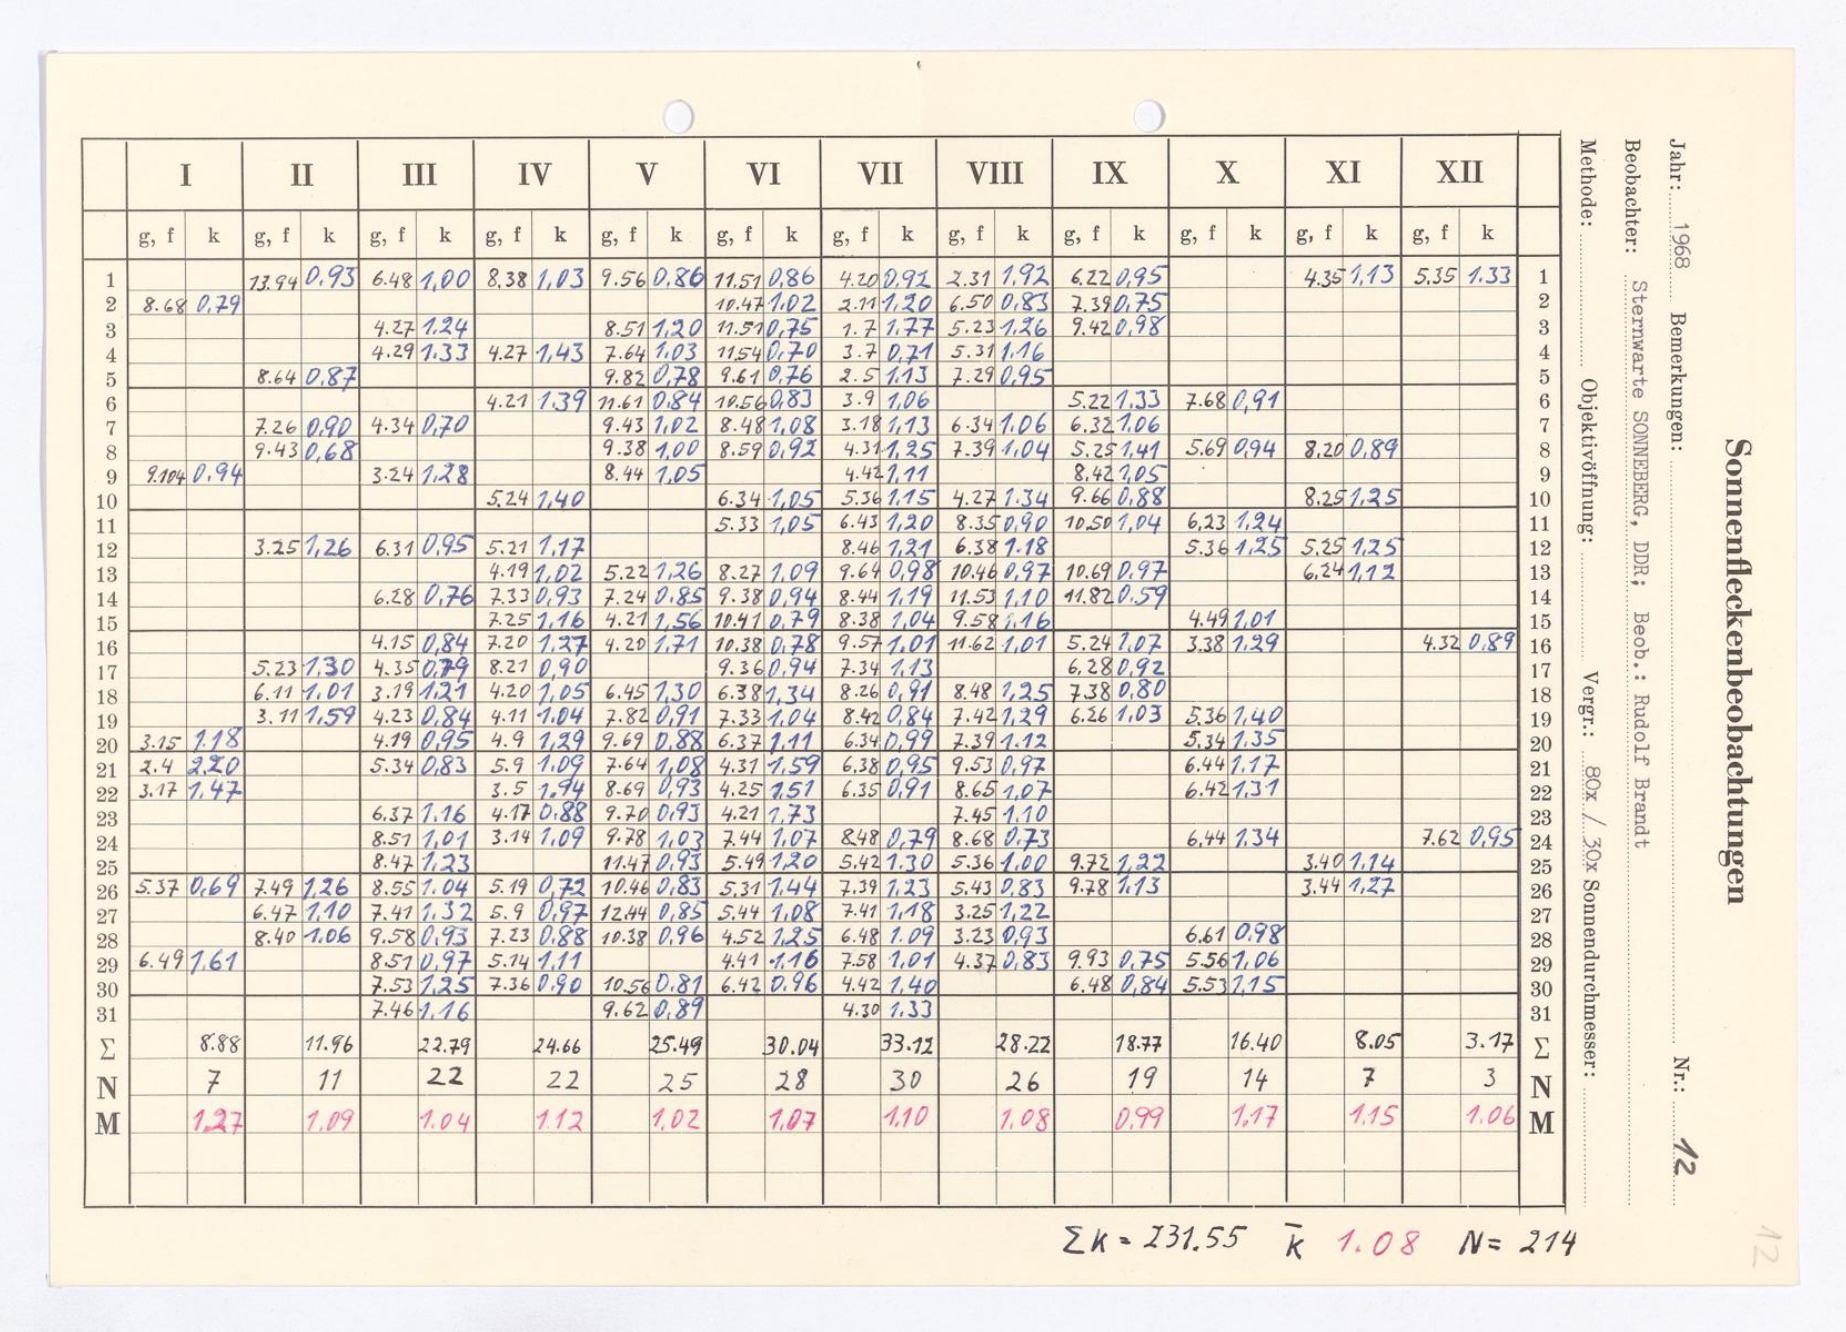 I II III IV V VI VII VIII IX X XI XII
g, f k g, f k g, f k g, f k g, f k g, f k g, f k g, f k g, f k g, f k g, f k g, f k
1 13.94 0.93 6.48 1,00 8.38 1,03 9.56 0,86 11.51 0,86 4.20 0,92 2.31 1.92 6.22 0,95 4.35 1,13 5.35 1.33 1
2 8.68 0,79 10.47 1.02 2.11 1,20 6.50 0,83 7.39 0,75 2
3 4.27 1.24 8.51 1,20 11.51 0,75 1.7 1.77 5.23 1.26 9.42 0,98 3
4 4.29 1.33 4.27 1,43 7.64 1.03 11.54 0,70 3.7 0,71 5.31 1.16 4
5 8.64 0,87 9.82 0,78 9.61 0,76 2.5 1.13 7.29 0,95 5
6 4.21 1.39 11.61 0,84 10.56 0,83 3.9 1,06 5.22 1.33 7.68 0,91 6
7 7.26 0,90 4.34 0,70 9.43 1,02 8.48 1,08 3.18 1,13 6.34 1.06 6.32 1.06 7
8 9.43 0,68 9.38 1,00 8.59 0,92 4.31 1,25 7.39 1,04 5.25 1,41 5.69 0,94 8.20 0,89 8
9 9.104 0,94 3.24 1,28 8.44 1,05 4.42 1,11 8.42 1,05 9
10 5.24 1,40 6.34 1,05 5.36 1.15 4.27 1.34 9.66 0,88 8.25 1,25 10
11 5.33 1,05 6.43 1,20 8.35 0,90 10.50 1,04 6,23 1,24 11
12 3.25 1,26 6.31 0,95 5.21 1,17 8.46 1,21 6.38 1.18 5.36 1,25 5.25 1,25 12
13 4.19 1,02 5.22 1,26 8.27 1,09 9.64 0,98 10.46 0,97 10.69 0,97 6.24 1,12 13
14 6.28 0,76 7.33 0,93 7.24 0.85 9.38 0,94 8.44 1,19 11.53 1,10 11.82 0.59 14
15 7.25 1,16 4.21 1,56 10.41 0,79 8.38 1,04 9.58 1,16 4.49 1,01 15
16 4.15 0,84 7.20 1.27 4.20 1.71 10.38 0,78 9.57 1.01 11.62 1.01 5.24 1,07 3.38 1,29 4.32 0,89 16
17 5.23 1,30 4.35 0,79 8.21 0,90 9.36 0,94 7.34 1.13 6.28 0,92 17
18 6.11 1,01 3.19 1,21 4.20 1,05 6.45 1,30 6.38 1,34 8.26 0,91 8.48 1,25 7.38 0,80 18
19 3.11 1,59 4.23 0,84 4.11 1.04 7.82 0,91 7.33 1.04 8.42 0,84 7.42 1,29 6.26 1,03 5.36 1,40 19
20 3.15 1.18 4.19 0,95 4.9 1,29 9.69 0,88 6.37 1,11 6.34 0,99 7.39 1.12 5.34 1.35 20
21 2.4 2,20 5.34 0,83 5.9 1,09 7.64 1,08 4.31 1.59 6.38 0,95 9.53 0,97 6.44 1.17 21
22 3.17 1,47 3.5 1.94 8.69 0,93 4.25 1.51 6.35 0,91 8.65 1,07 6.42 1,31 22
23 6.37 1.16 4.17 0.88 9.70 0,93 4.21 1,73 7.45 1.10 23
24 8.51 1,01 3.14 1,09 9.78 1,03 7.44 1,07 8.48 0,79 8.68 0.73 6,44 1.34 7.62 0,95 24
25 8.47 1,23 11.47 0,93 5.49 1.20 5.42 1.30 5.36 1.00 9.72 1,22 3.40 1,14 25
26 5.37 0,69 7.49 1,26 8.55 1.04 5.19 0,72 10.46 0,83 5.31 1,44 7.39 1,23 5.43 0,83 9.78 1,13 3.44 1,27 26
27 6.47 1,10 7.41 1.32 5.9 0,97 12.44 0,85 5.44 1,08 7.41 1,18 3.25 1,22 27
28 8.40 1.06 9.58 0,93 7.23 0,88 10.38 0,96 4.52 1,25 6.48 1.09 3.23 0,93 6.61 0,98 28
29 6.49 1.61 8.51 0,97 5.14 1,11 4.41 1.16 7.58 1,01 4.37 0,83 9.93 0,75 5.56 1,06 29
30 7.53 1,25 7.36 0.90 10.56 0.81 6.42 0.96 4.42 1,40 6.48 0,84 5.53 1,15 30
31 7.46 1.16 9.62 0,89 4.30 1.33 31
Σ 8.88 11.96 22.79 24.66 25.49 30.04 33.12 28.22 18.77 16.40 8.05 3.17 Σ
N 7 11 22 22 25 28 30 26 19 14 7 3 N
M 1,27 1,09 1.04 1.12 1.02 1,07 1,10 1,08 0,99 1,17 1.15 1.06 M
Σk = 231.55 k̄ 1.08 N = 214
Sonnenfleckenbeobachtungen
Jahr: 1968 Bemerkungen: Nr.: 12
Beobachter: Sternwarte SONNEBERG, DDR; Beob.: Rudolf Brandt
Methode: Objektivöffnung: Vergr.: 80x / 30x Sonnendurchmesser:
12